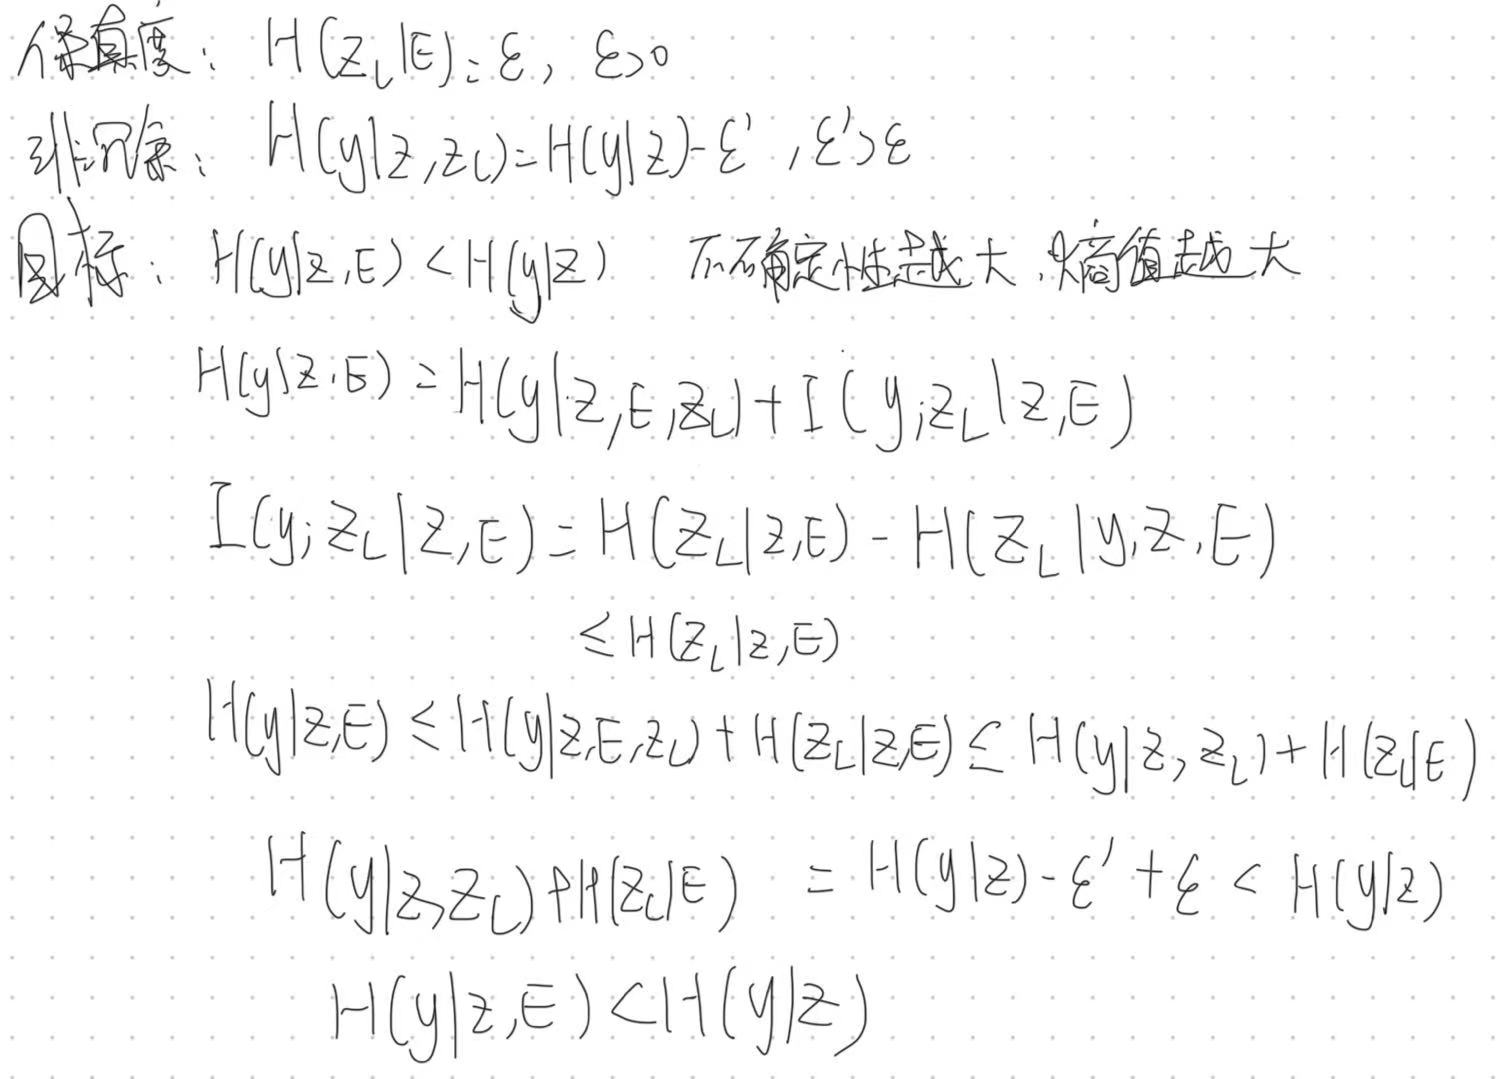 保真度: H(z_L|E)=ε, ε>0
非冗余: H(y|z,z_L)=H(y|z)-ε', ε'>ε
目标: H(y|z,E)<H(y|z) 不确定性越大,熵值越大
H(y|z,E)=H(y|z,E,z_L)+I(y;z_L|z,E)
I(y;z_L|z,E)=H(z_L|z,E)-H(z_L|y,z,E)
≤H(z_L|z,E)
H(y|z,E)≤H(y|z,E,z_L)+H(z_L|z,E)≤H(y|z,z_L)+H(z_L|E)
H(y|z,z_L)+H(z_L|E) =H(y|z)-ε'+ε<H(y|z)
H(y|z,E)<H(y|z)